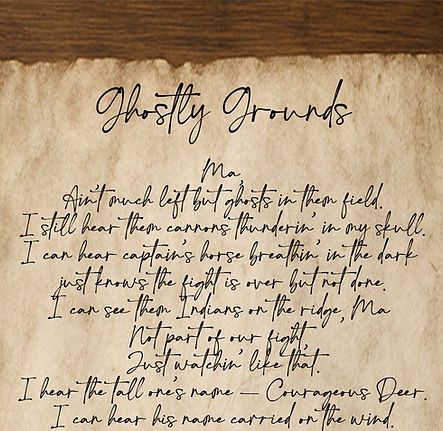 Ghostly Grounds
Ma,
Ain't much left but ghosts in them field.
I still hear them cannons thunderin' in my skull.
I can hear captain's horse breathin' in the dark
just knows the fight is over but not done.
I can see them Indians on the ridge, Ma
Not part of our fight,
Just watchin' like that.
I hear the tall one's name — Courageous Deer.
I can hear his name carried on the wind.